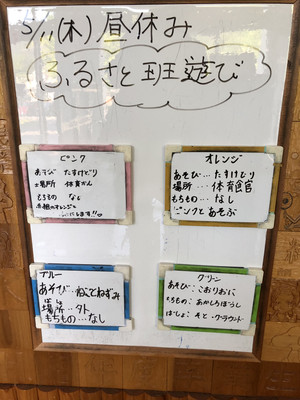 5/11(木)昼休み
ふるさと班遊び
ピンク
あそび たすけどり
場所 体育かん
もちもの なし
オレンジ
あそび…たすけどり
場所…体育館
もちもの…なし
ピンクとあそぶ
ブルー
あそび…ねことねずみ
場所…外
もちもの…なし
グリーン
あそび：こおりおに
もちもの：あかしろぼうし
ばしょ：そと・グラウンド